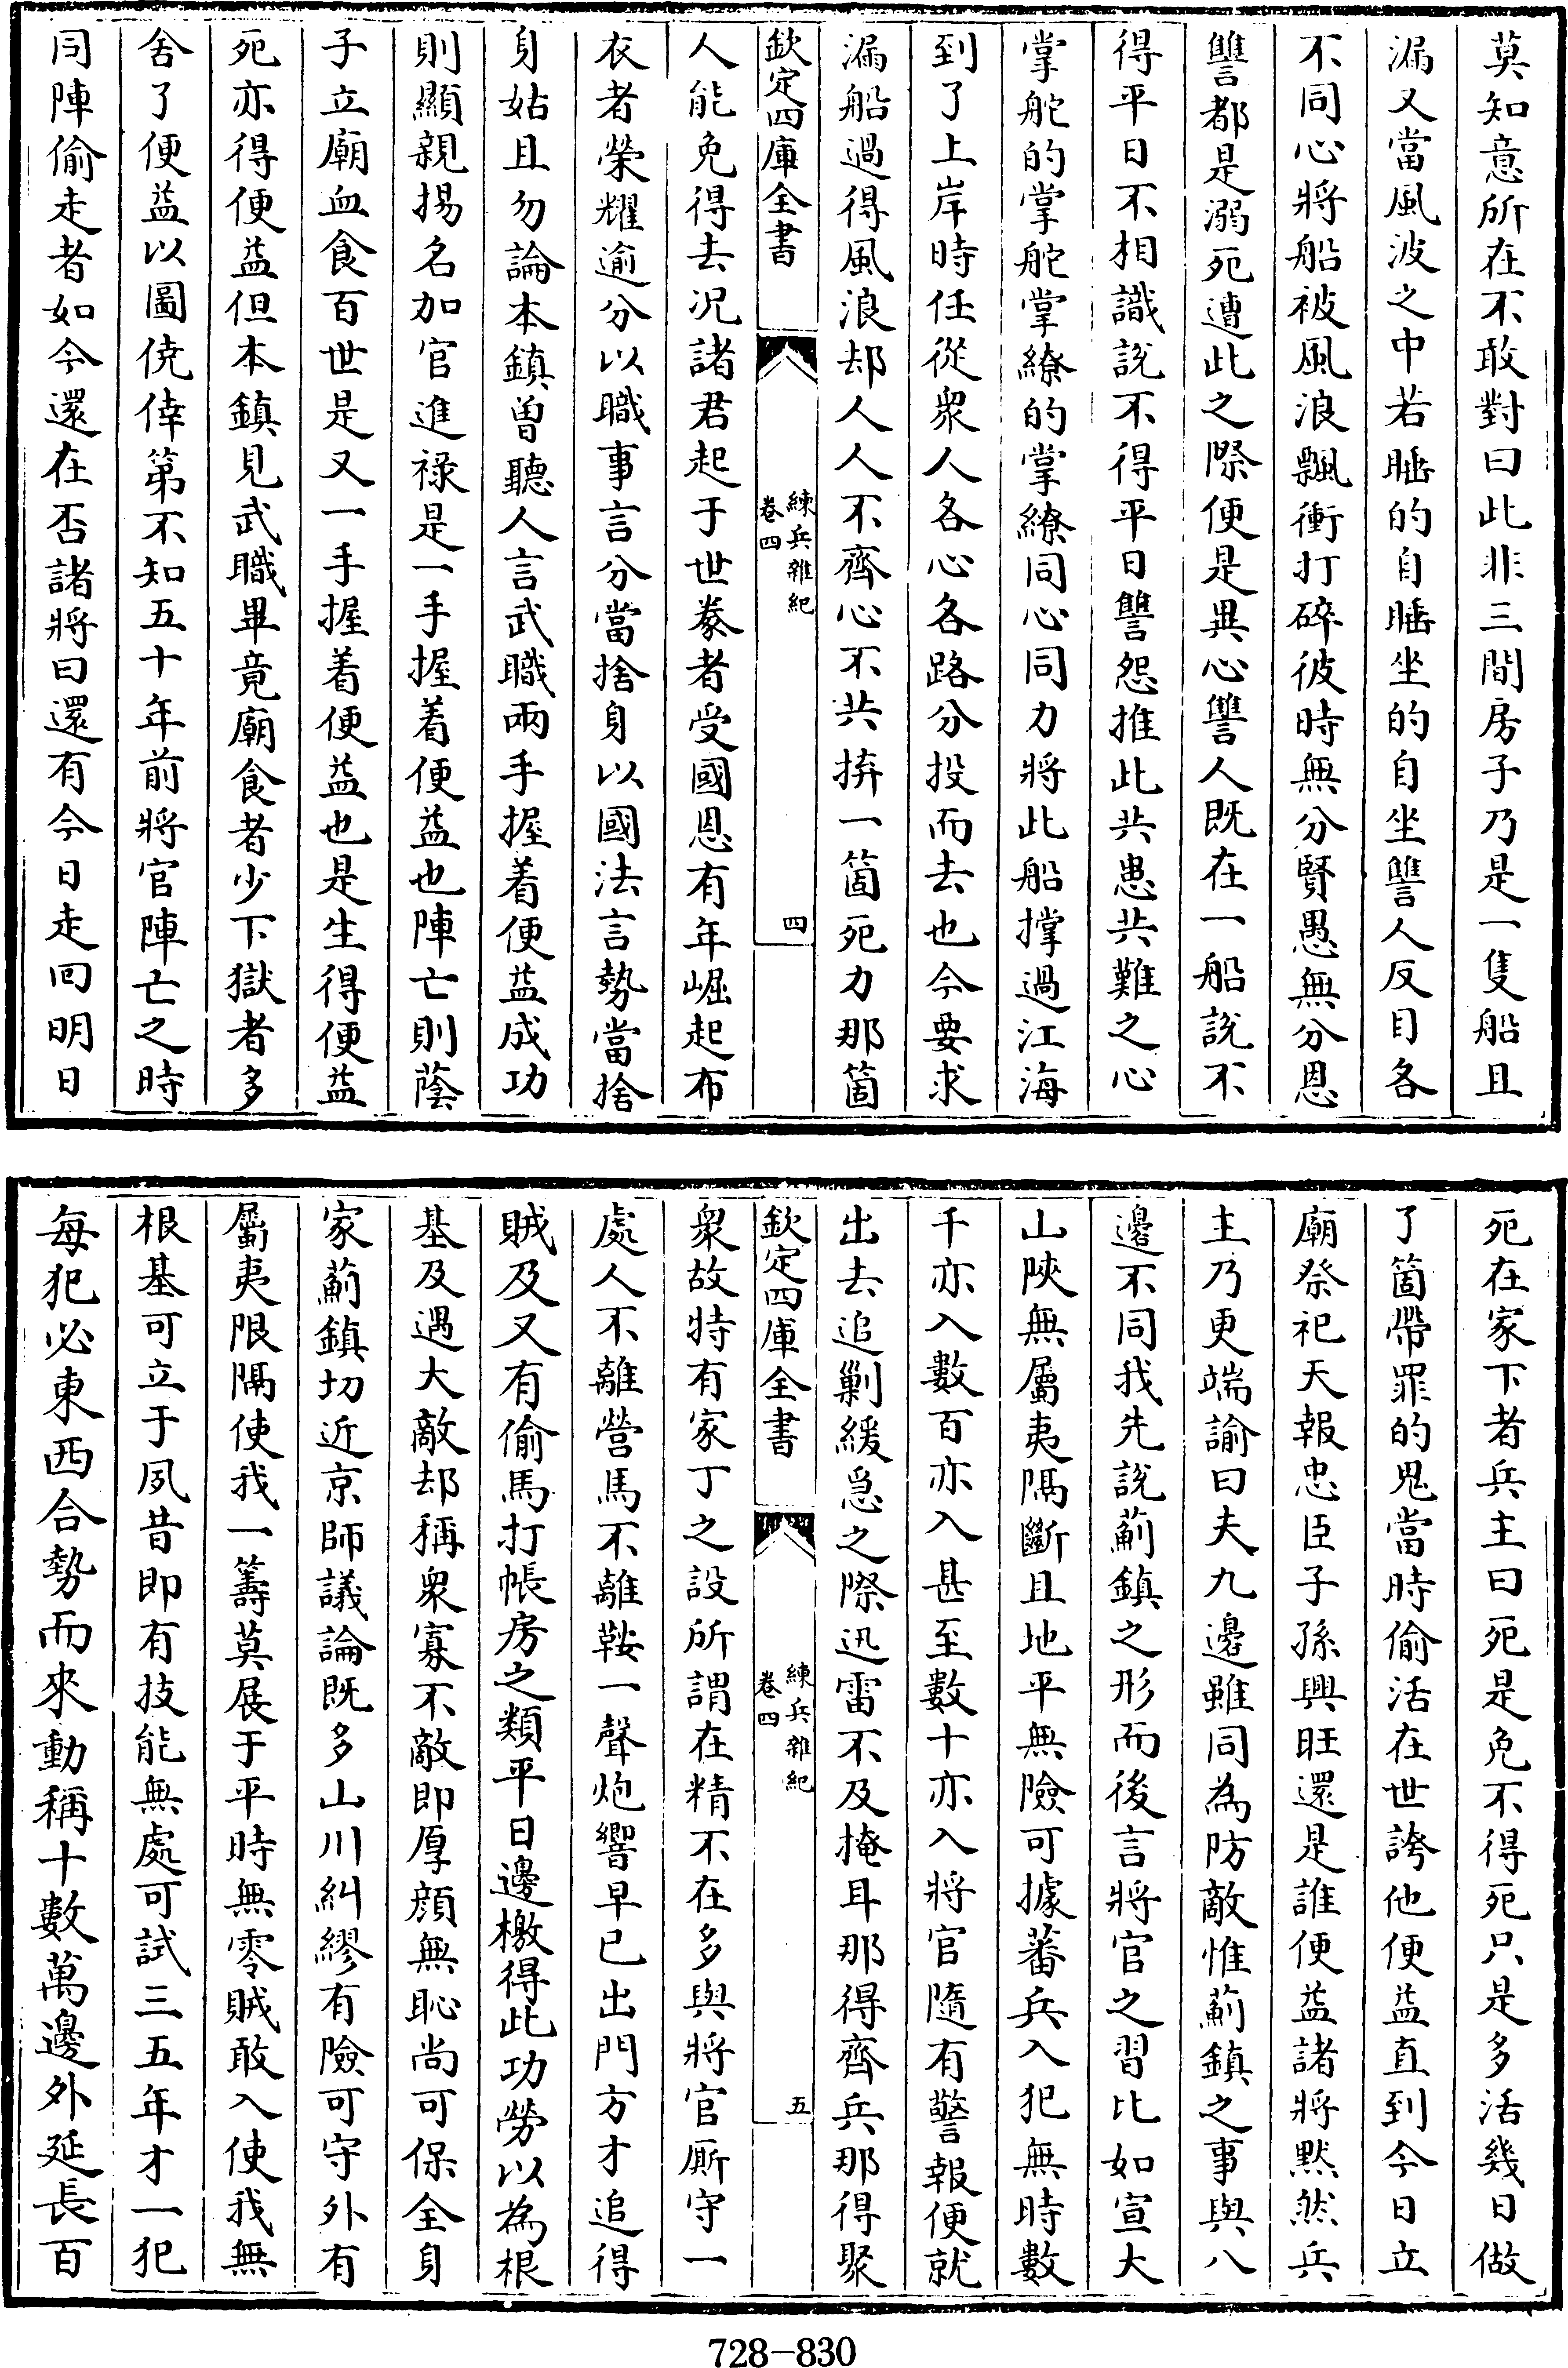 莫知意所在不敢對曰此非三間房子乃是一隻船且
漏又當風波之中若睡的自睡坐的自坐讐人反目各
不同心將船被風浪飄衝打碎彼時無分賢愚無分恩
讐都是溺死遭此之際便是異心讐人既在一船說不
得平日不相識說不得平日讐怨推此共患共難之心
掌舵的掌舵掌繚的掌繚同心同力將此船撑過江海
到了上岸時任從衆人各心各路分投而去也今要求
漏船過得風浪却人人不齊心不共拚一箇死力那箇
欽定四庫全書
練兵雜紀
卷四
四
人能免得去况諸君起于世豢者受國恩有年崛起布
衣者榮耀逾分以職事言分當捨身以國法言勢當捨
身姑且勿論本鎮曽聽人言武職兩手握着便益成功
則顯親揚名加官進祿是一手握着便益也陣亡則蔭
子立廟血食百世是又一手握着便益也是生得便益
死亦得便益但本鎮見武職畢竟廟食者少下獄者多
舍了便益以圖僥倖第不知五十年前將官陣亡之時
同陣偷走者如今還在否諸將曰還有今日走回明日
死在家下者兵主曰死是免不得死只是多活幾日做
了箇帶罪的鬼當時偷活在世誇他便益直到今日立
廟祭祀天報忠臣子孫興旺還是誰便益諸將黙然兵
主乃更端諭曰夫九邊雖同為防敵惟薊鎮之事與八
邊不同我先說薊鎮之形而後言將官之習比如宣大
山陝無屬夷隔斷且地平無險可據蕃兵入犯無時數
千亦入數百亦入甚至數十亦入將官隨有警報便就
出去追剿緩急之際迅雷不及掩耳那得齊兵那得聚
欽定四庫全書
練兵雜紀
卷四
五
衆故特有家丁之設所謂在精不在多與將官厮守一
處人不離營馬不離鞍一聲炮響早已出門方才追得
賊及又有偷馬打帳房之類平日邊檄得此功勞以為根
基及遇大敵却稱衆寡不敵即厚顔無恥尚可保全身
家薊鎮切近京師議論既多山川糾繆有險可守外有
屬夷限隔使我一籌莫展于平時無零賊敢入使我無
根基可立于夙昔即有技能無處可試三五年才一犯
每犯必東西合勢而來動稱十數萬邊外延長百
728-830